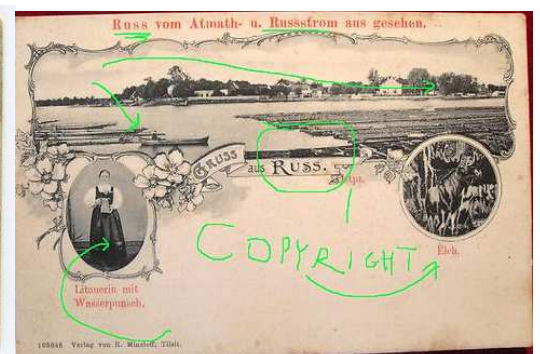 Russ vom Atmath- u. Russstrom aus gesehen.
GRUSS
aus RUSS.
COPYRIGHT
Elch.
Litauerin mit
Wasserpunsch.
105648 Verlag von R. Minzloff, Tilsit.